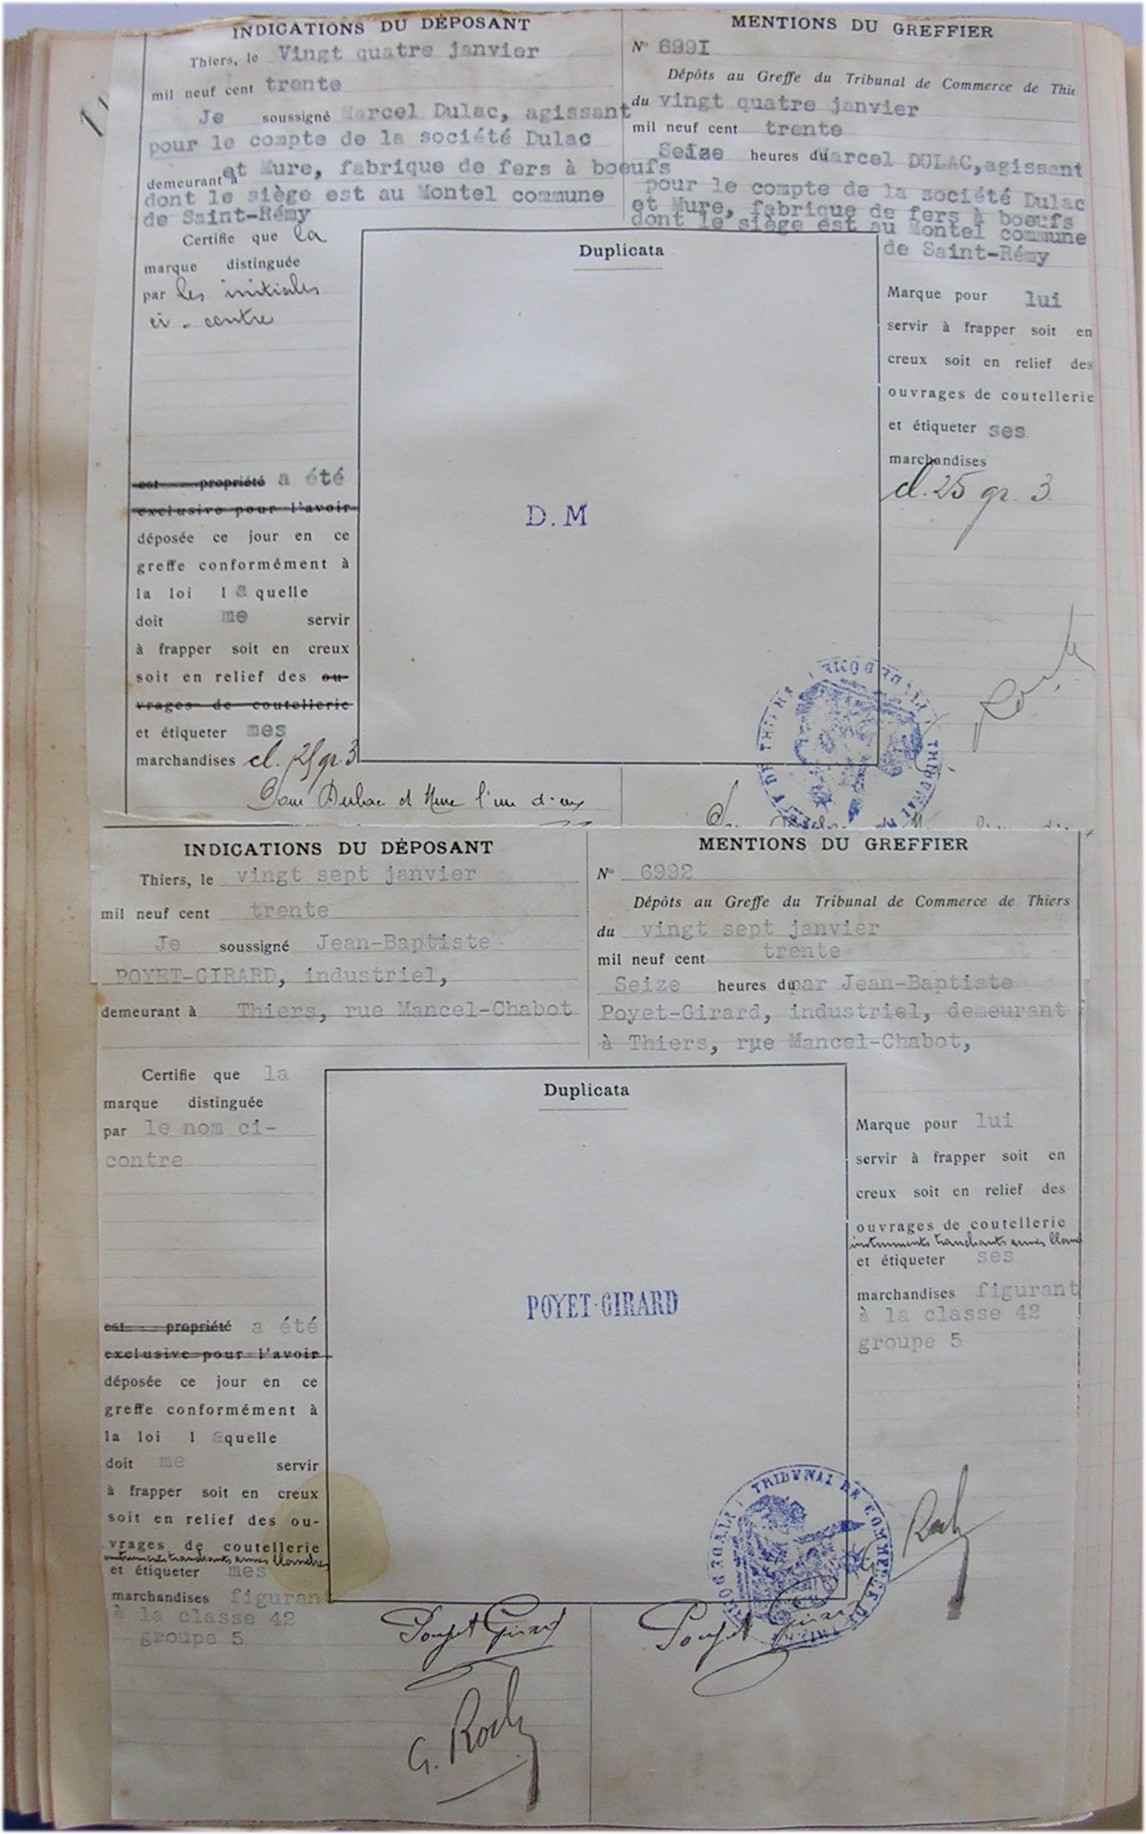 INDICATIONS DU DÉPOSANT
Thiers, le Vingt quatre janvier
mil neuf cent trente
Je soussigné Marcel Dulac, agissant
pour le compte de la société Dulac
demeurant à et Mure, fabrique de fers à boeufs
dont le siège est au Montel commune
de Saint-Rémy
Certifie que la
marque distinguée
par les initiales
ci-contre
est propriété a été
exclusive pour l'avoir
déposée ce jour en ce
greffe conformément à
la loi laquelle
doit me servir
à frapper soit en creux
soit en relief des ou-
vrages de coutellerie
et étiqueter mes
marchandises cl. 25 gr. 3
Duplicata
D.M
Pour Dulac et Mure l'un d'eux
MENTIONS DU GREFFIER
N° 699I
Dépôts au Greffe du Tribunal de Commerce de Thie
du vingt quatre janvier
mil neuf cent trente
Seize heures du arcel DULAC, agissant
pour le compte de la société Dulac
et Mure, fabrique de fers à boeufs
dont le siège est au Montel commune
de Saint-Rémy
Marque pour lui
servir à frapper soit en
creux soit en relief des
ouvrages de coutellerie
et étiqueter ses
marchandises
cl. 25 gr. 3
INDICATIONS DU DÉPOSANT
Thiers, le vingt sept janvier
mil neuf cent trente
Je soussigné Jean-Baptiste
POYET-GIRARD, industriel,
demeurant à Thiers, rue Mancel-Chabot
Certifie que la
marque distinguée
par le nom ci-
contre
est propriété a été
exclusive pour l'avoir
déposée ce jour en ce
greffe conformément à
la loi laquelle
doit me servir
à frapper soit en creux
soit en relief des ou-
vrages de coutellerie
instruments tranchants armes blanches
et étiqueter mes
marchandises figurant
à la classe 42
groupe 5
Duplicata
POYET-GIRARD
Poyet Girard
G. Roch
MENTIONS DU GREFFIER
N° 6992
Dépôts au Greffe du Tribunal de Commerce de Thiers
du vingt sept janvier
mil neuf cent trente
Seize heures du par Jean-Baptiste
Poyet-Girard, industriel, demeurant
à Thiers, rue Mancel-Chabot,
Marque pour lui
servir à frapper soit en
creux soit en relief des
ouvrages de coutellerie
instruments tranchants armes blanc
et étiqueter ses
marchandises figurant
à la classe 42
groupe 5
TRIBVNAL DE COMMERCE DE THIERS
Roch
Poyet Girard